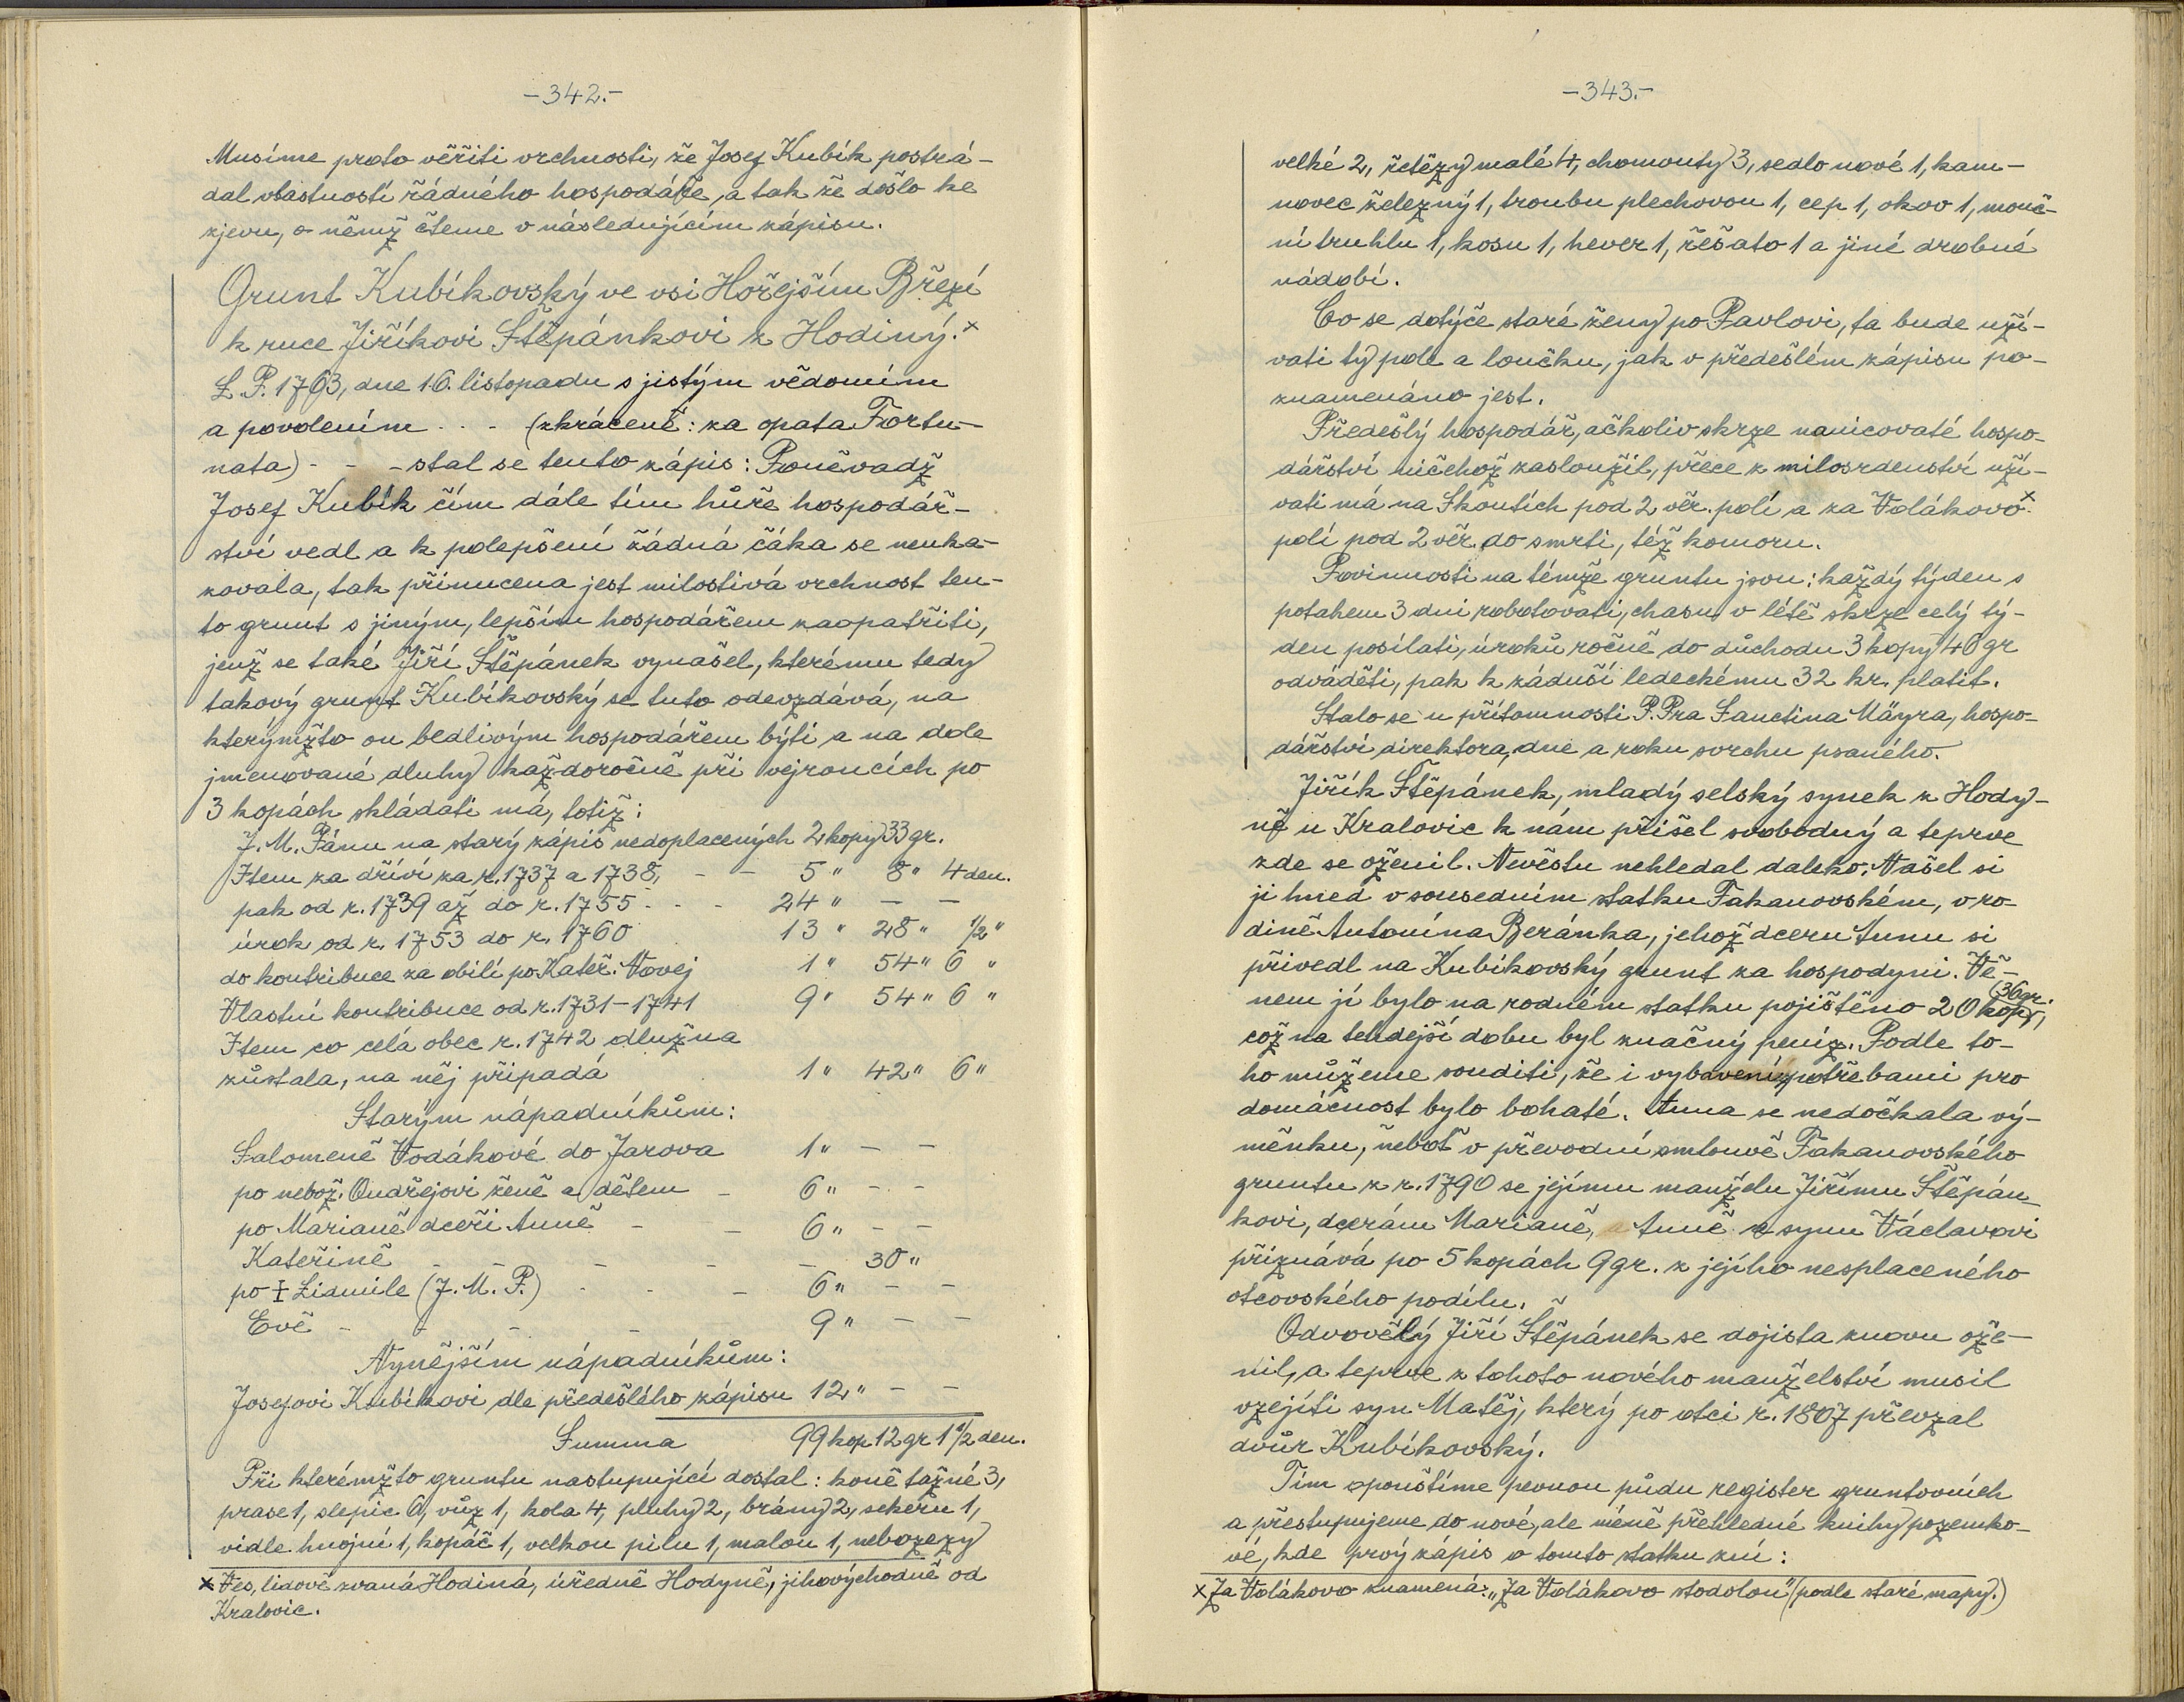 -342.-
Musíme proto věřiti vrchnosti, že Josef Kubík postrá-
dal vlastností řádného hospodáře, a tak že došlo ke
zjevu, o němž čteme v následujícím zápisu.
Grunt Kubíkovský ve vsi Hořejším Březí
k ruce Jiříkovi Štěpánkovi z Hodiný.×
L. P. 1763, dne 16. listopadu s jistým vědomím
a povolením . . - (zkráceně: za opata Fortu-
nata) - - - stal se tento zápis: Poněvadž
Josef Kubík čím dále tím hůře hospodář-
ství vedl a k polepšení žádná čáka se neuka-
zovala, tak přinucena jest milostivá vrchnost ten-
to grunt s jiným, lepším hospodářem zaopatřiti,
jenž se také Jiří Štěpánek vynašel, kterému tedy
takový grunt Kubíkovský se tuto odevzdává, na
kterýmžto on bedlivým hospodářem býti a na dole
jmenované dluhy každoročně při vejroncích po
3 kopách skládati má, totiž:
J. M. Pánu na starý zápis nedoplacených 2 kopy 33 gr.
Item za dříví za r. 1737 a 1738, - - 5 " 8 " 4 den.
pak od r. 1739 až do r. 1755 - - - 24 " — —
úrok od r. 1753 do r. 1760 13 " 28 " 1/2 "
do kontribuce za obilí po Kateř. Vovej 1 " 54 " 6 "
Vlastní kontribuce od r. 1731-1741 9 " 54 " 6 "
Item co celá obec r. 1742 dlužna
zůstala, na něj připadá 1 " 42 " 6 "
Starým nápadníkům:
Salomeně Vodákové do Jarova 1 " — —
po nebož. Ondřejovi ženě a dětem - 6 " - -
po Marianě dceři Anně - - 6 " - -
Kateřině - - - - - 30 "
po ‡ Lidmile (J. M. P.) - - - 6 " - -
Evě - - - - 9 " - -
Nynějším nápadníkům:
Josefovi Kubíkovi dle předešlého zápisu 12 " - -
Summa 99 kop 12 gr 1 1/2 den.
Při kterémžto gruntu nastupující dostal: koně tažné 3,
prase 1, slepic 6, vůz 1, kola 4, pluhy 2, brány 2, sekeru 1,
vidle hnojní 1, kopáč 1, velkou pilu 1, malou 1, nebozezy
× Ves, lidově zvaná Hodiná, úředně Hodyně, jihovýchodně od
Kralovic.
-343.-
velké 2, řetězy malé 4, chomouty 3, sedlo nové 1, kam-
novec železný 1, troubu plechovou 1, cep 1, okov 1, mouč-
ní truhlu 1, kosu 1, hever 1, řešato 1 a jiné drobné
nádobí.
Co se dotýče staré ženy po Pavlovi, ta bude uží-
vati ty pole a loučku, jak v předešlém zápisu po-
znamenáno jest.
Předešlý hospodář, ačkoliv skrze nanicovaté hospo-
dářství ničehož zasloužil, přece z milosrdenství uží-
vati má na Skoutích pod 2 věr. polí a za Volákovo×
polí pod 2 věr. do smrti, též komoru.
Povinnosti na témže gruntu jsou: každý týden s
potahem 3 dni robotovati, chasu v létě skrze celý tý-
den posílati, úroků ročně do důchodu 3 kopy 40 gr
odváděti, pak k záduší ledeckému 32 kr. platit.
Stalo se u přítomnosti P. Pra Sanctina Mäyra, hospo-
dářství direktora, dne a roku svrchu psaného.
Jiřík Štěpánek, mladý selský synek z Hody-
ně u Kralovic k nám přišel svobodný a teprve
zde se oženil. Nevěstu nehledal daleko; Našel si
ji hned v sousedním statku Fakanovském, v ro-
dině Antonína Beránka, jehož dceru Annu si
přivedl na Kubíkovský grunt za hospodyni. Vě-
nem jí bylo na rodném statku pojištěno 20 kop, (36 gr.
což na tehdejší dobu byl značný peníz. Podle to-
ho můžeme souditi, že i vybavení potřebami pro
domácnost bylo bohaté. Anna se nedočkala vý-
měnku, neboť v převodní smlouvě Fakanovského
gruntu z r. 1790 se jejímu manželu Jiřímu Štěpán-
kovi, dcerám Marianě, Anně a synu Václavovi
přiznává po 5 kopách 9 gr. z jejího nesplaceného
otcovského podílu.
Odvovělý Jiří Štěpánek se dojista znovu ože-
nil, a teprve z tohoto nového manželství musil
vzejíti syn Matěj, který po otci r. 1807 převzal
dvůr Kubíkovský.
Tím opouštíme pevnou půdu register gruntovních
a přestupujeme do nové, ale méně přehledné knihy pozemko-
vé, kde prvý zápis o tomto statku zní:
× Za Volákovo znamená: „Za Volákovo stodolou" (podle staré mapy.)